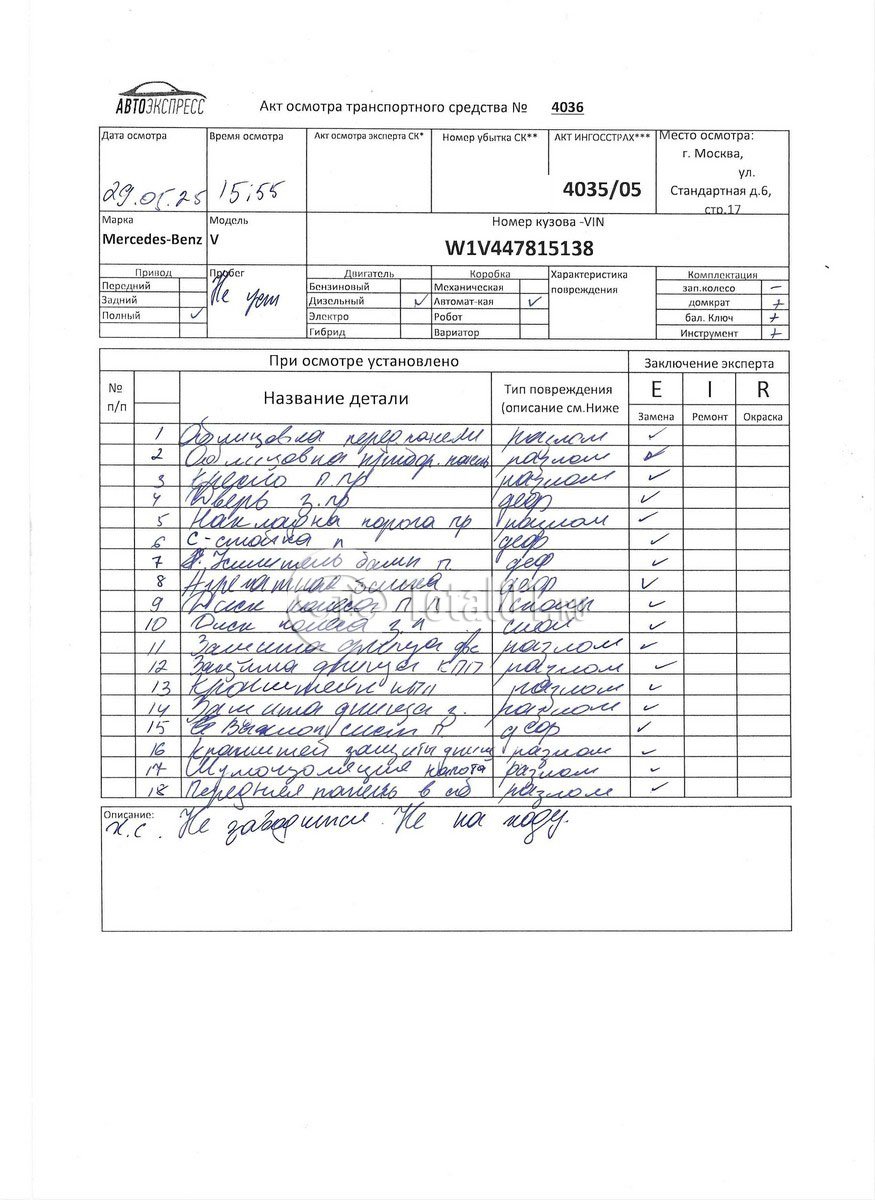 АВТОЭКСПРЕСС
Акт осмотра транспортного средства № 4036
Дата осмотра Время осмотра Акт осмотра эксперта СК* Номер убытка СК** АКТ ИНГОССТРАХ*** Место осмотра:
г. Москва,
ул.
29.05.25 15:55 4035/05 Стандартная д.6,
стр.17
Марка Модель Номер кузова -VIN
Mercedes-Benz V W1V447815138
Привод Пробег Двигатель Коробка Характеристика Комплектация
Передний Не уст Бензиновый Механическая повреждения зап.колесо –
Задний Дизельный ✓ Автомат-кая ✓ домкрат +
Полный ✓ Электро Робот бал. Ключ +
Гибрид Вариатор Инструмент +
При осмотре установлено Заключение эксперта
№ п/п Название детали Тип повреждения (описание см.Ниже E I R
Замена Ремонт Окраска
1 Облицовка перед панели разлом ✓
2 Облицовка прибор. панель разлом ✓
3 Кресло п.пр разлом ✓
4 Дверь з.пр деф ✓
5 Накладка порога пр разлом ✓
6 С-стойка п деф ✓
7 Усилитель бамп п. деф ✓
8 Агрегатная балка деф ✓
9 Диск колеса п п ✓
10 Диск колеса з.п скол ✓
11 Защита днища двс разлом ✓
12 Защита днища КПП разлом ✓
13 Кронштейн кпп разлом ✓
14 Защита днища з. разлом ✓
15 Выхлоп сист п деф ✓
16 Кронштей защиты днищ разлом ✓
17 Шумоизоляция капота разлом ✓
18 Передняя панель в сб разлом ✓
Описание:
Х.С. Не заводится. Не на ходу.
TotalCar.ru